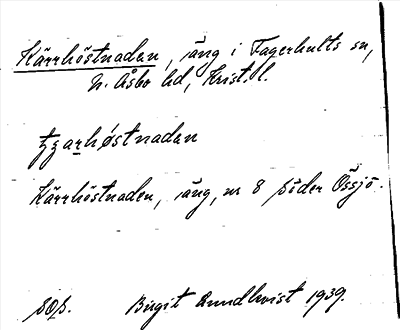 Kärrhöstnaden, äng i Fagerhults sn,
N. Åsbo hd, Krist.l.
tzarhøstnadan
Kärrhöstnaden, äng, nr 8 söder Össjö.
sof.
Birgit Lundkvist 1939.